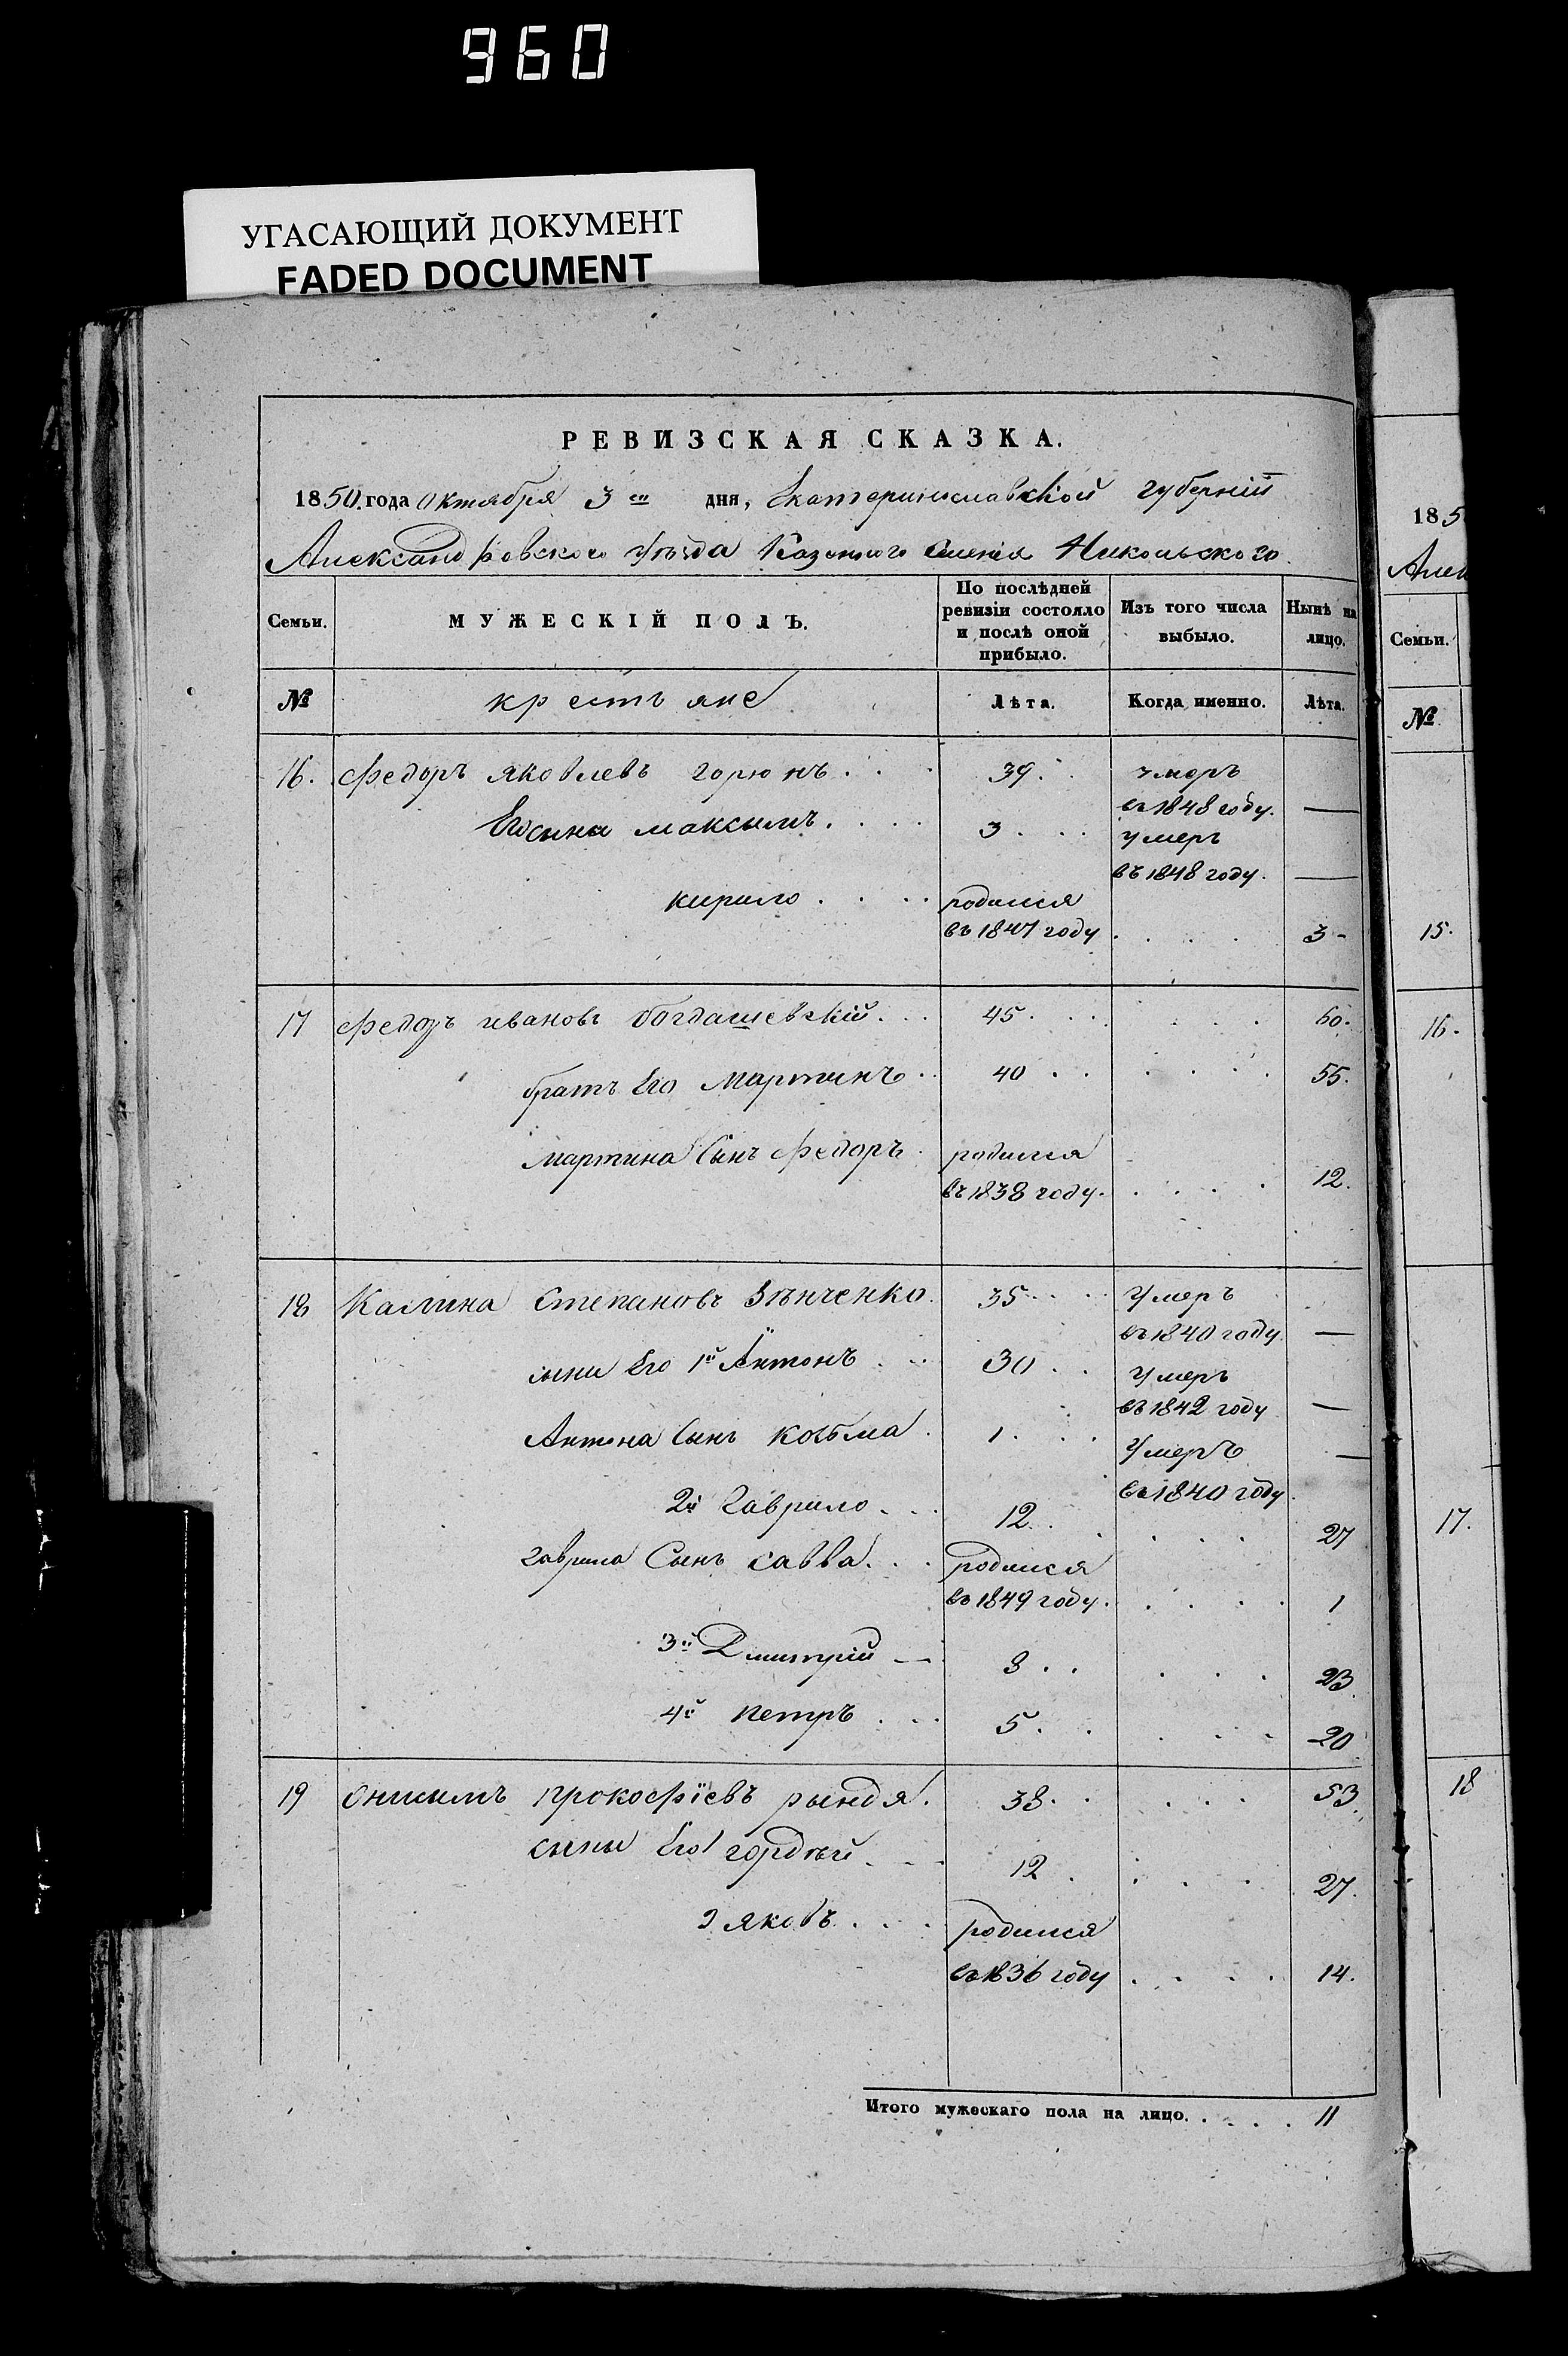 960
УГАСАЮЩИЙ ДОКУМЕНТ
FADED DOCUMENT
РЕВИЗСКАЯ СКАЗКА.
1850. года Октября 3го дня, Екатеринославской губерніи
Александровского Уѣзда Казенного Имения Никольского
Семьи. МУЖЕСКІЙ ПОЛЪ. По послѣдней ревизіи состояло и послѣ оной прибыло. Изъ того числа выбыло. Нынѣ на лицо.
№ крестьяне Лѣта. Когда именно. Лѣта.
16. Федоръ яковлевъ горюнъ. 39. умеръ
въ 1848 году. —
Его сыны максымъ. 3. умеръ
въ 1848 году. —
кирило родился
въ 1847 году 3
17 федоръ ивановъ богдашевскій. 45. 60.
братъ Его Мартинъ 40 55.
мартина Сынъ федоръ родился
въ 1838 году. 12.
18 Калина Степановъ Зѣнченко. 35 Умеръ
въ 1840 году —
сыни Его 1й Антонъ 30 Умеръ
въ 1842 году —
Антона Сынъ козьма 1. Умеръ —
въ 1840 году
2й Гаврило 12. 27
гаврила Сынъ савва. родился
въ 1849 году. 1
3й Дмитрій 8 23
4й петръ 5. 20
19 Онисымъ прокофіевъ рындя. 38. 53.
сыны Его 1 гордѣй 12 27.
2 яковъ родился
въ 1836 году 14.
Итого мужескаго пола на лицо. 11
185
Алек
Семьи.
№
15.
16.
17.
18